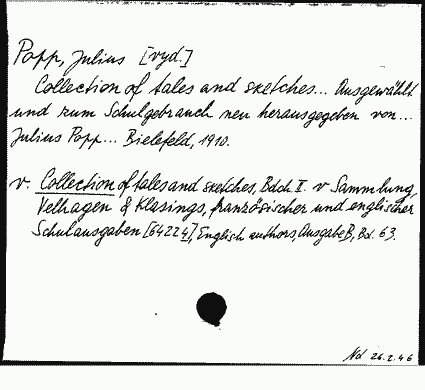 Popp, Julius [vyd.]
Collection of tales and sketches... Ausgewählt
und zum Schulgebrauch neu herausgegeben von...
Julius Popp... Bielefeld, 1910.
v. Collection of tales and sketches, Bdch. II. v Sammlung,
Velhagen & Klasings, französischer und englischer
Schulausgaben [64224], English authors, Ausgabe B, Bd. 63.
Nd 26.2.46